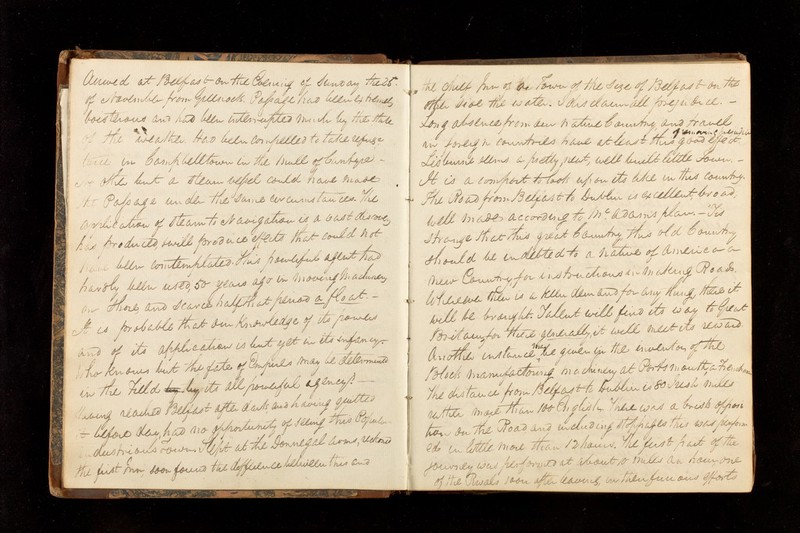 Arrived at Belfast on the Evening of Sunday the 25
of November from Greenock. Passage had been extremely
boisterous and had been interrupted much by the state
of the weather. Had been compelled to take refuge
twice in Campbelltown in the Mull of Cantyre -
None but a Steam vessel could have made
the Passage under the same circumstances. The
application of steam to Navigation is a vast discovery
has produced, & will produce effects that could not
have been contemplated. This powerful agent has
hardly been used, 50 years ago in moving Machinery
on Shore, and scarce half that period a float. -
It is probable that our knowledge of its powers
and of its application is but yet in its infancy.
Who knows but the fate of Empires may be determined
in the Field by its all powerful agency! -
Having reached Belfast after dark and having quitted
it before day, had no opportunity of seeing this Populous
industrious Town. Slept at the Donnegal Arms,
the first Inn, soon found the difference between this and
the chief Inn of the Town of the size of Belfast on the
other side the water. I disclaim all prejudice. -
Long absence from our native Country and travell
in foreign countries have at least this good effect of removing
Lisburne seems a pretty neat, well built little Town. -
It is a comfort to look upon its like in this country.
The Road from Belfast to Dublin is excellent, broad,
well made according to Mc Adams plan. - 'Tis
strange that this great Country this old Country
should be indebted to a native of America a
new Country for instructions in making Roads.
Wherever there is a keen demand for any thing, there it
will be brought. Talent will find its way to Great
Britain, for there generally, it will meet its reward
Another instance may be given in the inventor of the
Block manufacturing machinery at Portsmouth, a Frenchman
The distance from Belfast to Dublin is 80 Irish miles
rather more than 100 English. There was a brisk opposi
tion on the Road and including stoppages this was perform
ed in little more than 12 hours. The first part of the
journey was performed at about 11 miles an hour, one
of the Rivals soon after leaving in their furious efforts